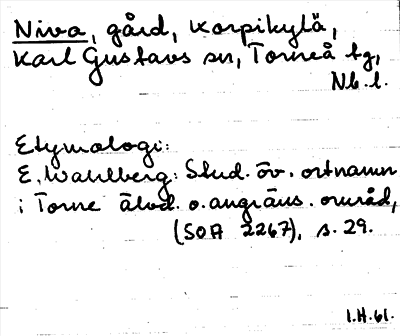 Niva, gård, Korpikylä,
Karl Gustavs sn, Torneå tg,
Nb. l.
Etymologi:
E. Wahlberg: Stud. öv. ortnamn
i Torne älvd. o. angräns. område,
(SOA 2267), s. 29.
I.H.61.